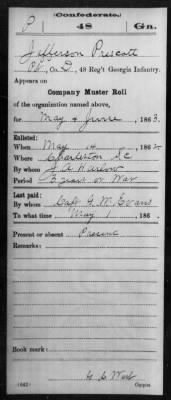 (Confederate.)
P 48 Ga.
Jefferson Prescott
Pvt, Co. D, 48 Reg't Georgia Infantry.
Appears on
Company Muster Roll
of the organization named above,
for May & June, 1863.
Enlisted:
When May 14, 1862
Where Charleston SC
By whom J. A. Harlow
Period 3 years or War
Last paid:
By whom Capt. G. M. Evans
To what time May 1, 186
Present or absent Present
Remarks:
Book mark:
(642) Copyist.